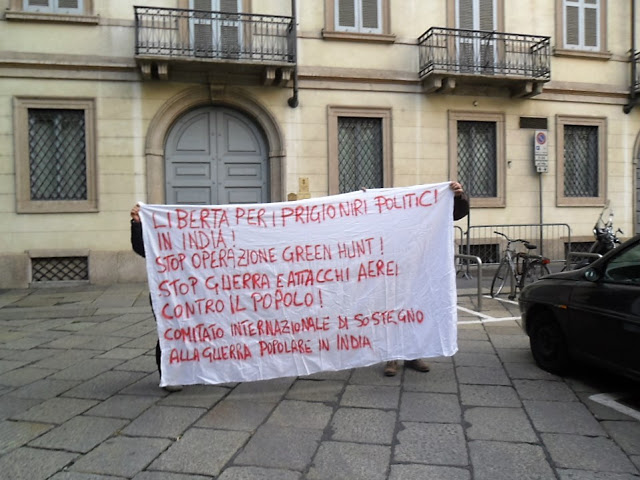 LIBERTA PER I PRIGIONIRI POLITICI
IN INDIA!
STOP OPERAZIONE GREEN HUNT!
STOP GUERRA E ATTACCHI AEREI
CONTRO IL POPOLO!
COMITATO INTERNAZIONALE DI SOSTEGNO
ALLA GUERRA POPOLARE IN INDIA